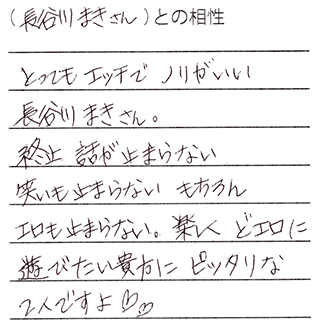 (長谷川まきさん)との相性
とってもエッチで ノリがいい
長谷川まきさん。
終止 話が止まらない
笑いも止まらない もちろん
エロも止まらない。楽しく どエロに
遊びたい貴方に ピッタリな
2人ですよ♡♡